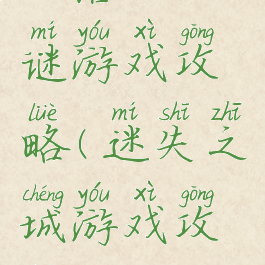 mí yóu xì gōng
谜游戏攻
lüè mí shī zhī
略(迷失之
chéng yóu xì gōng
城游戏攻